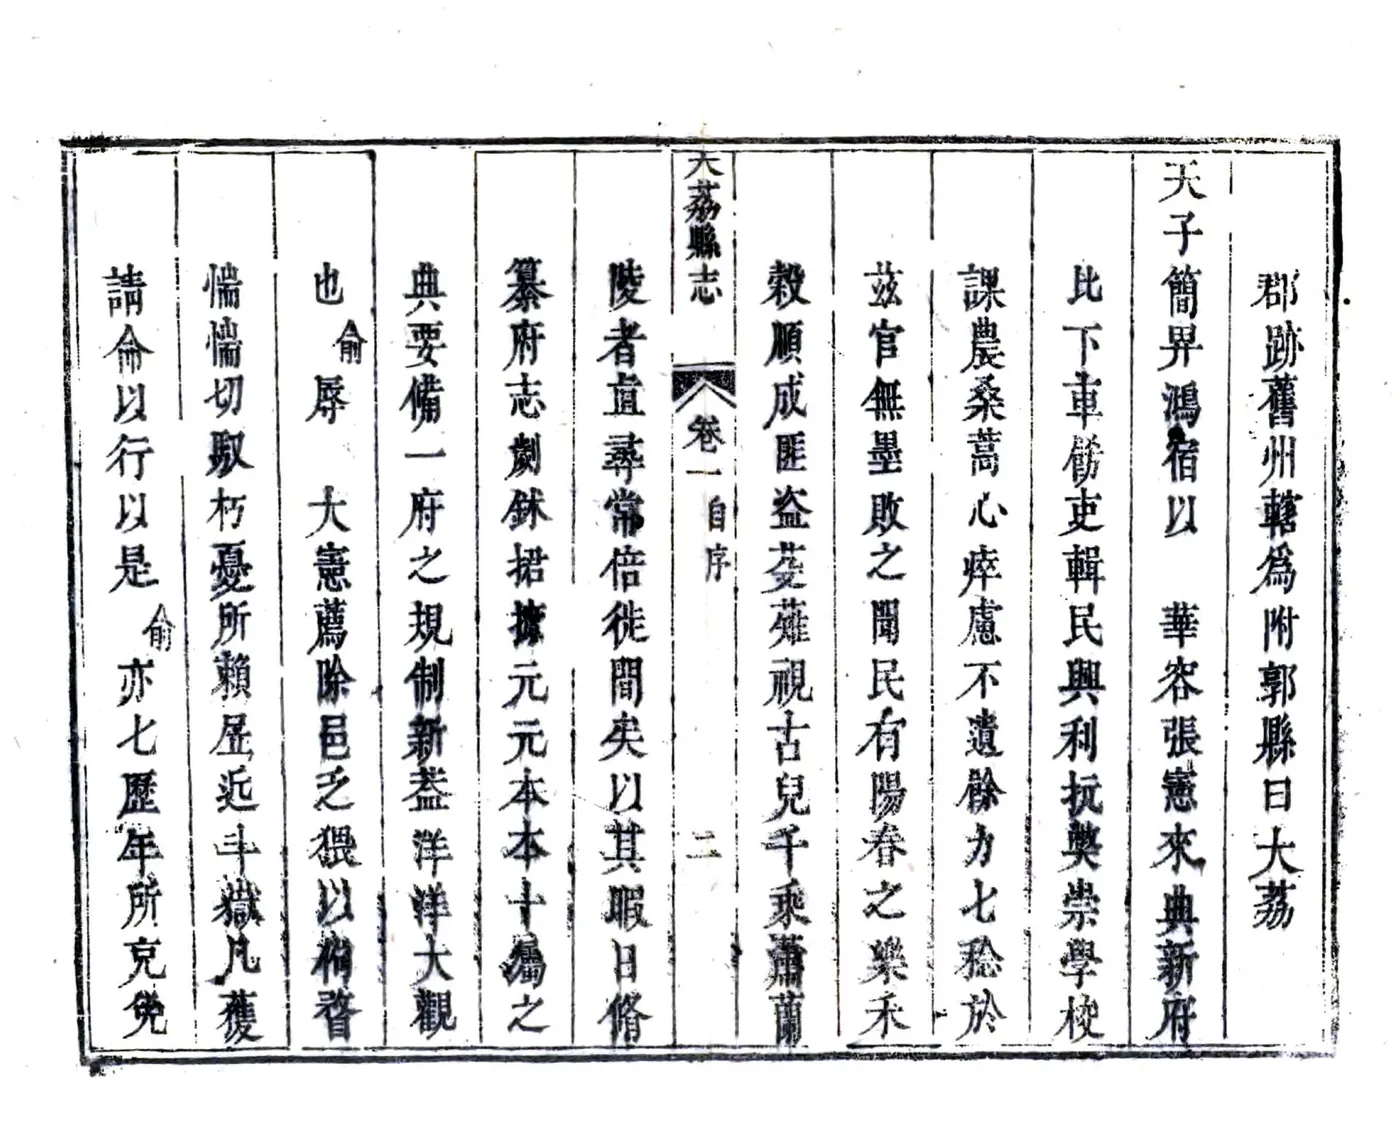 郡跡舊州轄為附郭縣曰大荔
天子簡畀鴻宿以　華容張憲來典新府
比下車飭吏輯民興利抏獘崇學校
課農桑蒿心瘁慮不遺餘力七稔於
茲官無墨敗之聞民有陽春之樂禾
穀順成匪盜芟薙視古兒千乘蕭蘭
大荔縣志　卷一　自序　二
陵者直尋常倍徙間矣以其暇日脩
纂府志劌鉥捃摭元元本本十屬之
典要備一府之規制新葢洋洋大觀
也俞辱　大憲薦除邑乏猥以椆瞀
惴惴切馭朽憂所賴昼近斗嶽凡蒦
請侖以行以是俞亦七歷年所克免